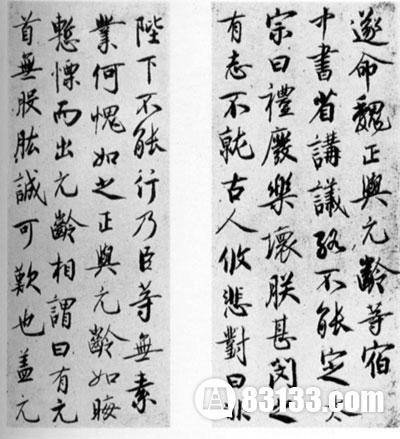 遂命魏正與元齡等宿
中書省講議終不能定太
宗曰禮廢樂壞朕甚閔之
有志不就古人攸悲對曰非
陛下不能行乃臣等無素
業何愧如之正與元齡如晦
慙慄而出元齡相謂曰有元
首無股肱誠可歎也蓋元
83133.com